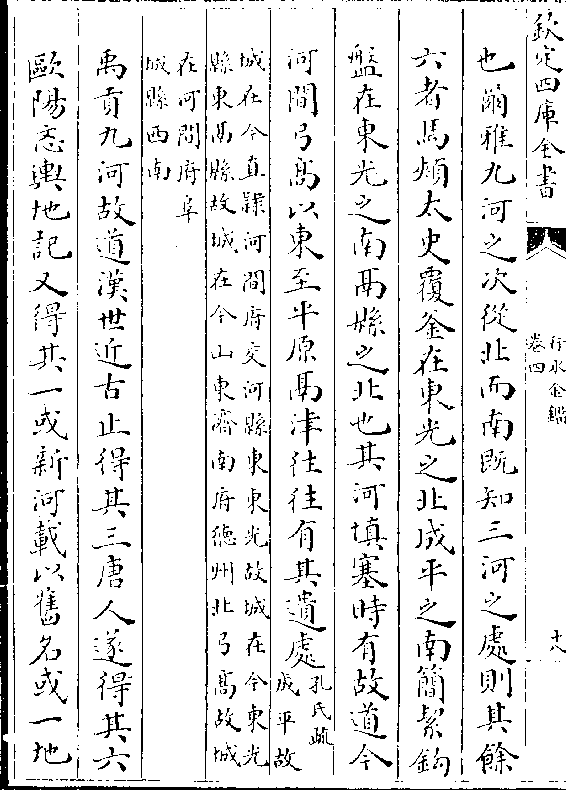 欽定四庫全書
行水金鑑
卷四
十八
也爾雅九河之次從北而南既知三河之處則其餘
六者馬頰太史覆釜在東光之北成平之南簡絜鈎
盤在東光之南鬲縣之北也其河填塞時有故道今
河間弓高以東至平原鬲津往往有其遺處孔氏疏
成平故
城在今直隸河間府交河縣東東光故城在今東光
縣東鬲縣故城在今山東濟南府德州北弓高故城
在河間府阜
城縣西南
禹貢九河故道漢世近古止得其三唐人遂得其六
歐陽忞輿地記又得其一或新河載以舊名或一地